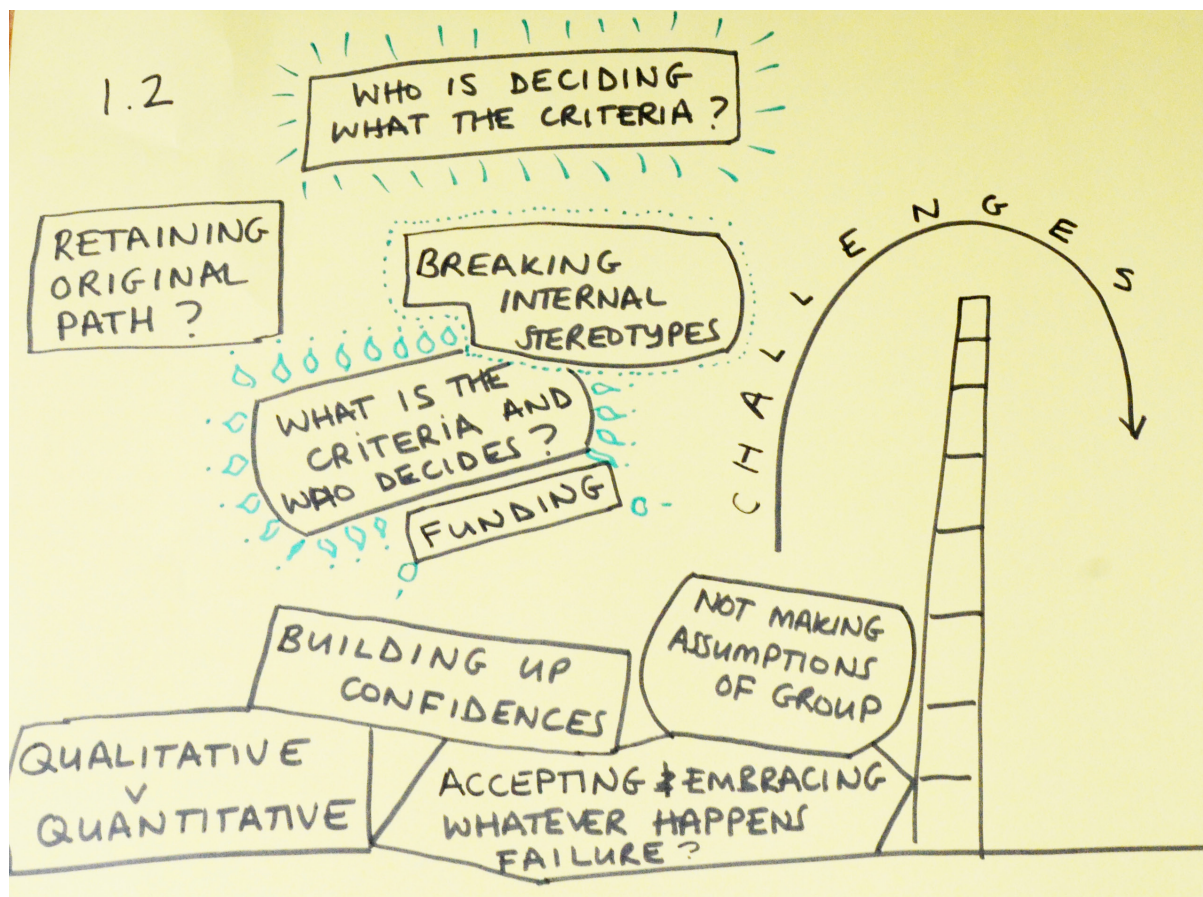 1.2
WHO IS DECIDING
WHAT THE CRITERIA?
RETAINING
ORIGINAL
PATH?
BREAKING
INTERNAL
STEREOTYPES
CHALLENGES
WHAT IS THE
CRITERIA AND
WHO DECIDES?
FUNDING
BUILDING UP
CONFIDENCES
NOT MAKING
ASSUMPTIONS
OF GROUP
QUALITATIVE
V
QUANTITATIVE
ACCEPTING & EMBRACING
WHATEVER HAPPENS
FAILURE?